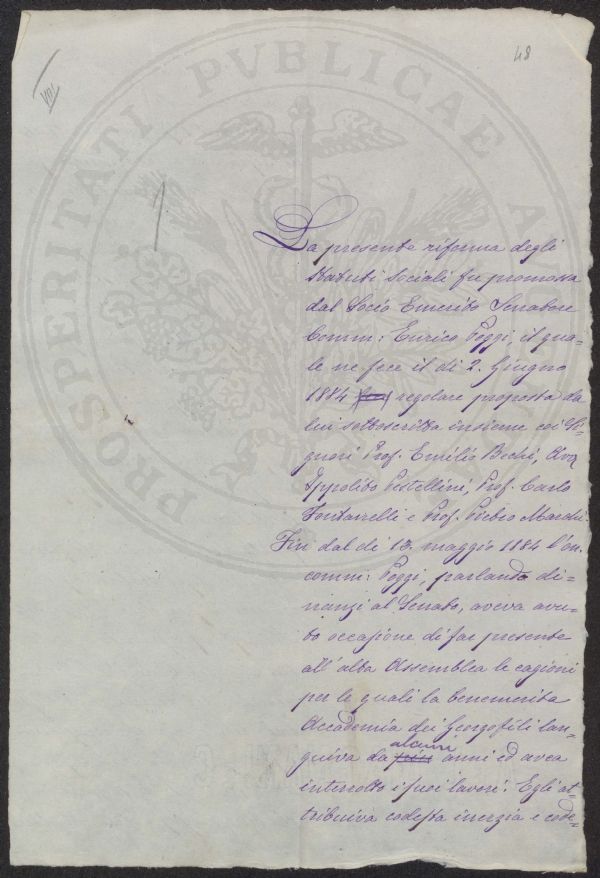 48
VIII
PROSPERITATI PVBLICAE A
La presente riforma degli
Statuti sociali fu promossa
dal Socio Emerito Senatore
Comm: Enrico Poggi, il qua-
le ne fece il dì 2. Giugno
1884 regolare proposta da
lui sottoscritta insieme coi Si-
gnori Prof. Emilio Bechi, Avv.
Ippolito Pestellini, Prof. Carlo
Fontanelli e Prof. Pietro Marchi.
Fin dal dì 13. maggio 1884 l'on.
comm: Poggi, parlando di-
nanzi al Senato, aveva avu-
to occasione di far presente
all'alta Assemblea le cagioni
per le quali la benemerita
Accademia dei Georgofili lan-
guiva da alcuni anni ed avea
interrotto i suoi lavori. Egli at-
tribuiva codesta inerzia e code-